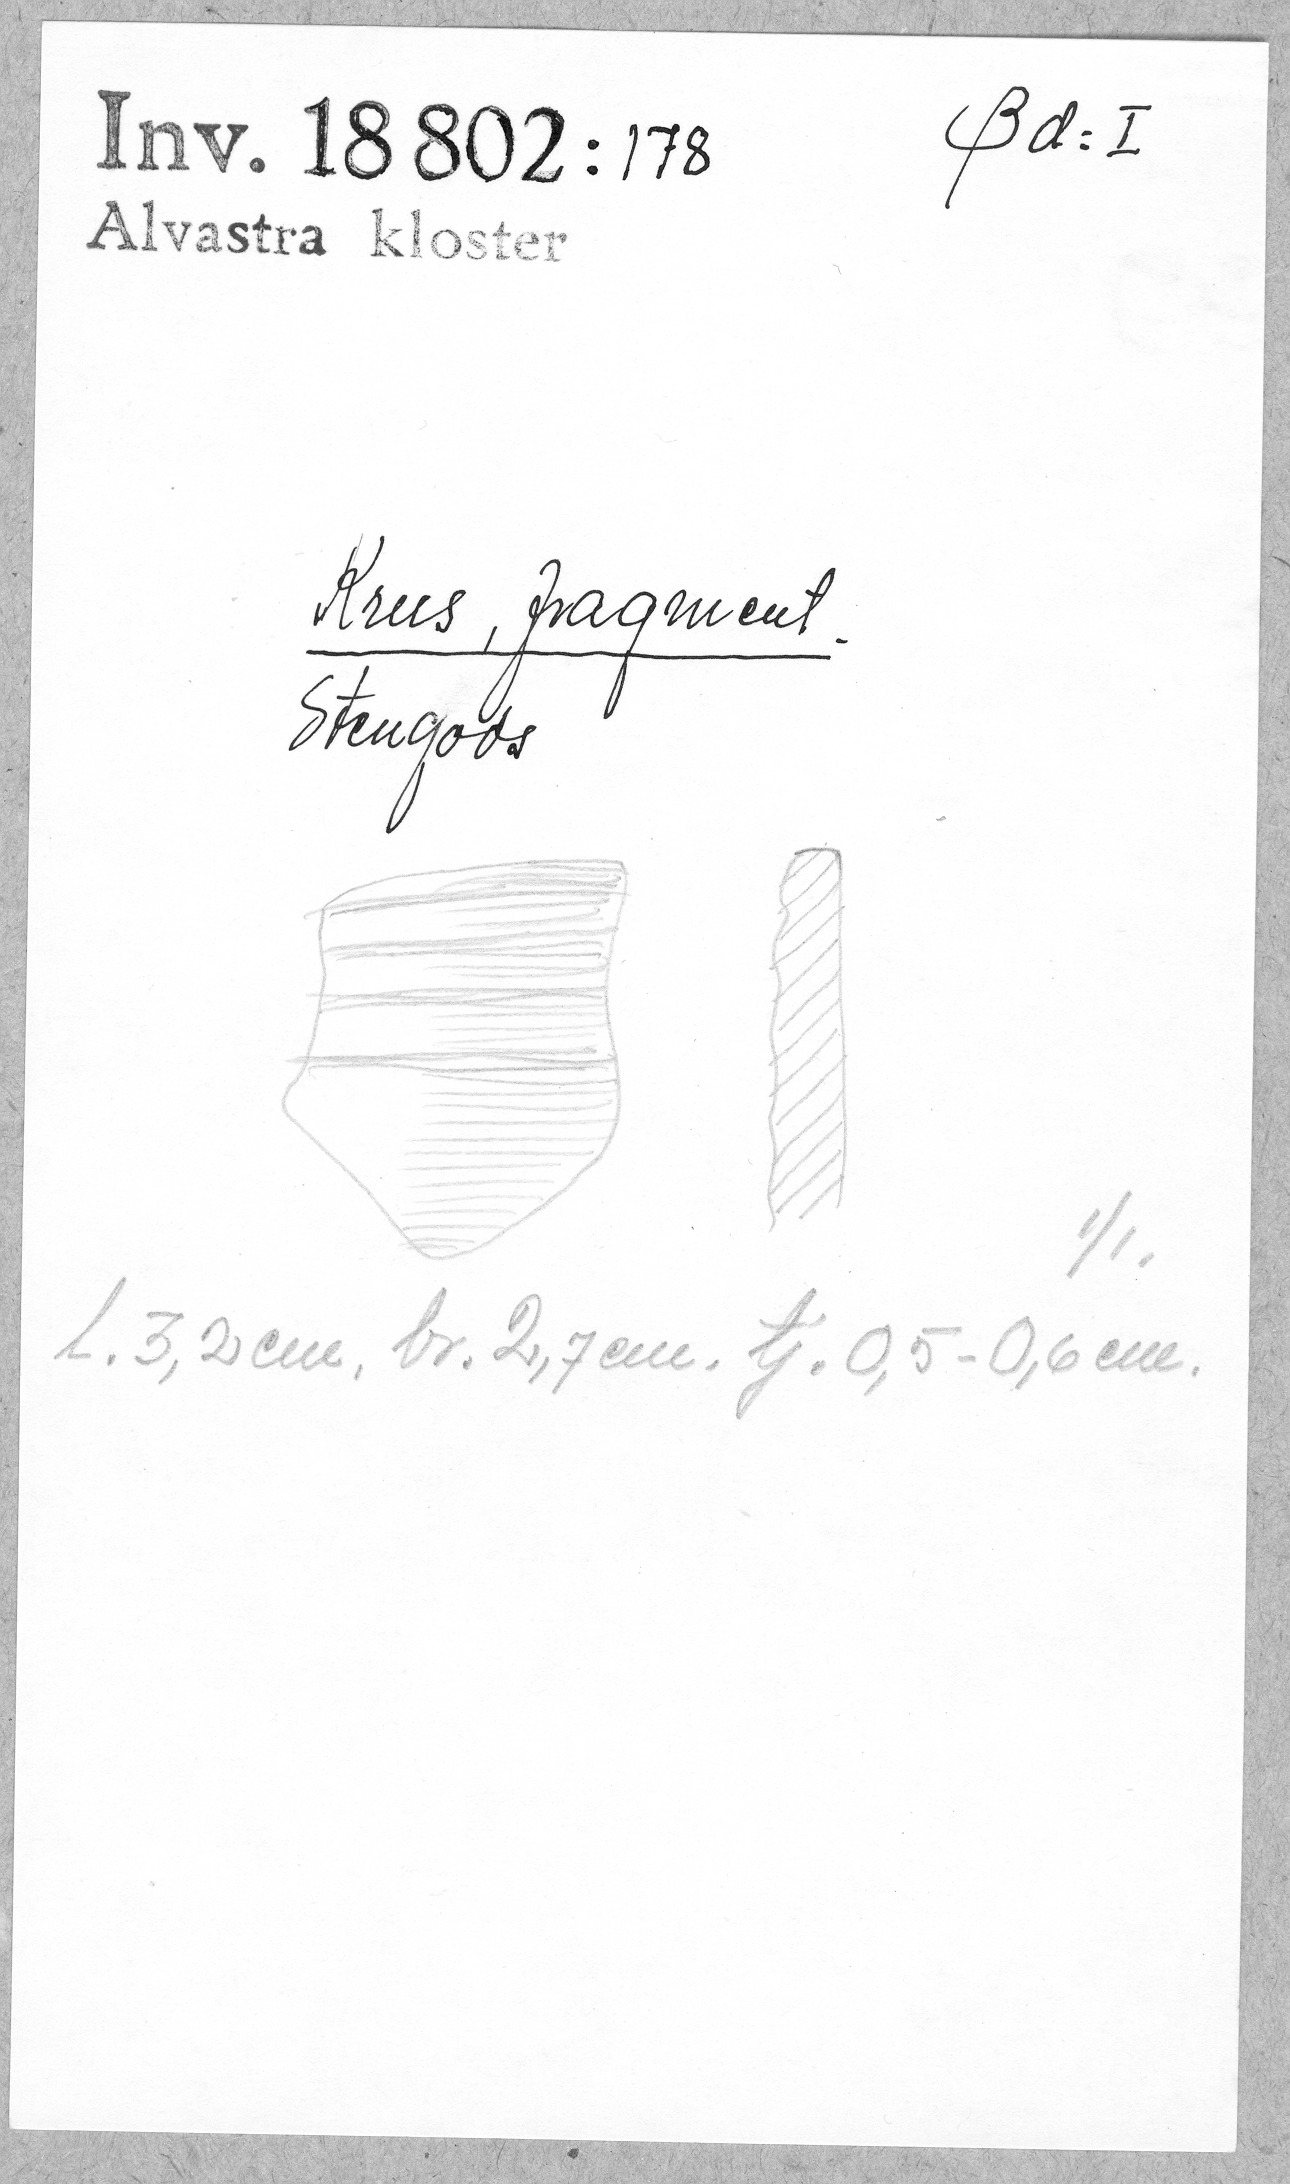 Inv. 18802:178
βd:I
Alvastra kloster
Krus, fragment.
Stengods
1/1.
L. 3,2 cm. br. 2,7 cm. tj. 0,5-0,6 cm.